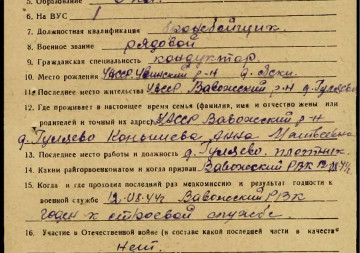 5. Образование
6. На ВУС 1
7. Должностная квалификация
8. Военное звание рядовой
9. Гражданская специальность кондуктор
10. Место рождения УАССР, р-н д.
11. Последнее место жительства УАССР Вавожский р-н д. Гуляево
12. Где проживает в настоящее время семья (фамилия, имя и отчество жены или
родителей и точный их адрес) УАССР Вавожский р-н
д. Гуляево Конышева Анна Матвеевна
13. Последнее место работы и должность д. Гуляево, плотник
14. Каким райгорвоенкоматом и когда призван Вавожский РВК
15. Когда и где проходил последний раз медкомиссию и результат годности к
военной службе 12.08.44г Вавожский РВК
годен к строевой службе.
16. Участие в Отечественной войне (в составе какой последней части и в качестве
Нет.